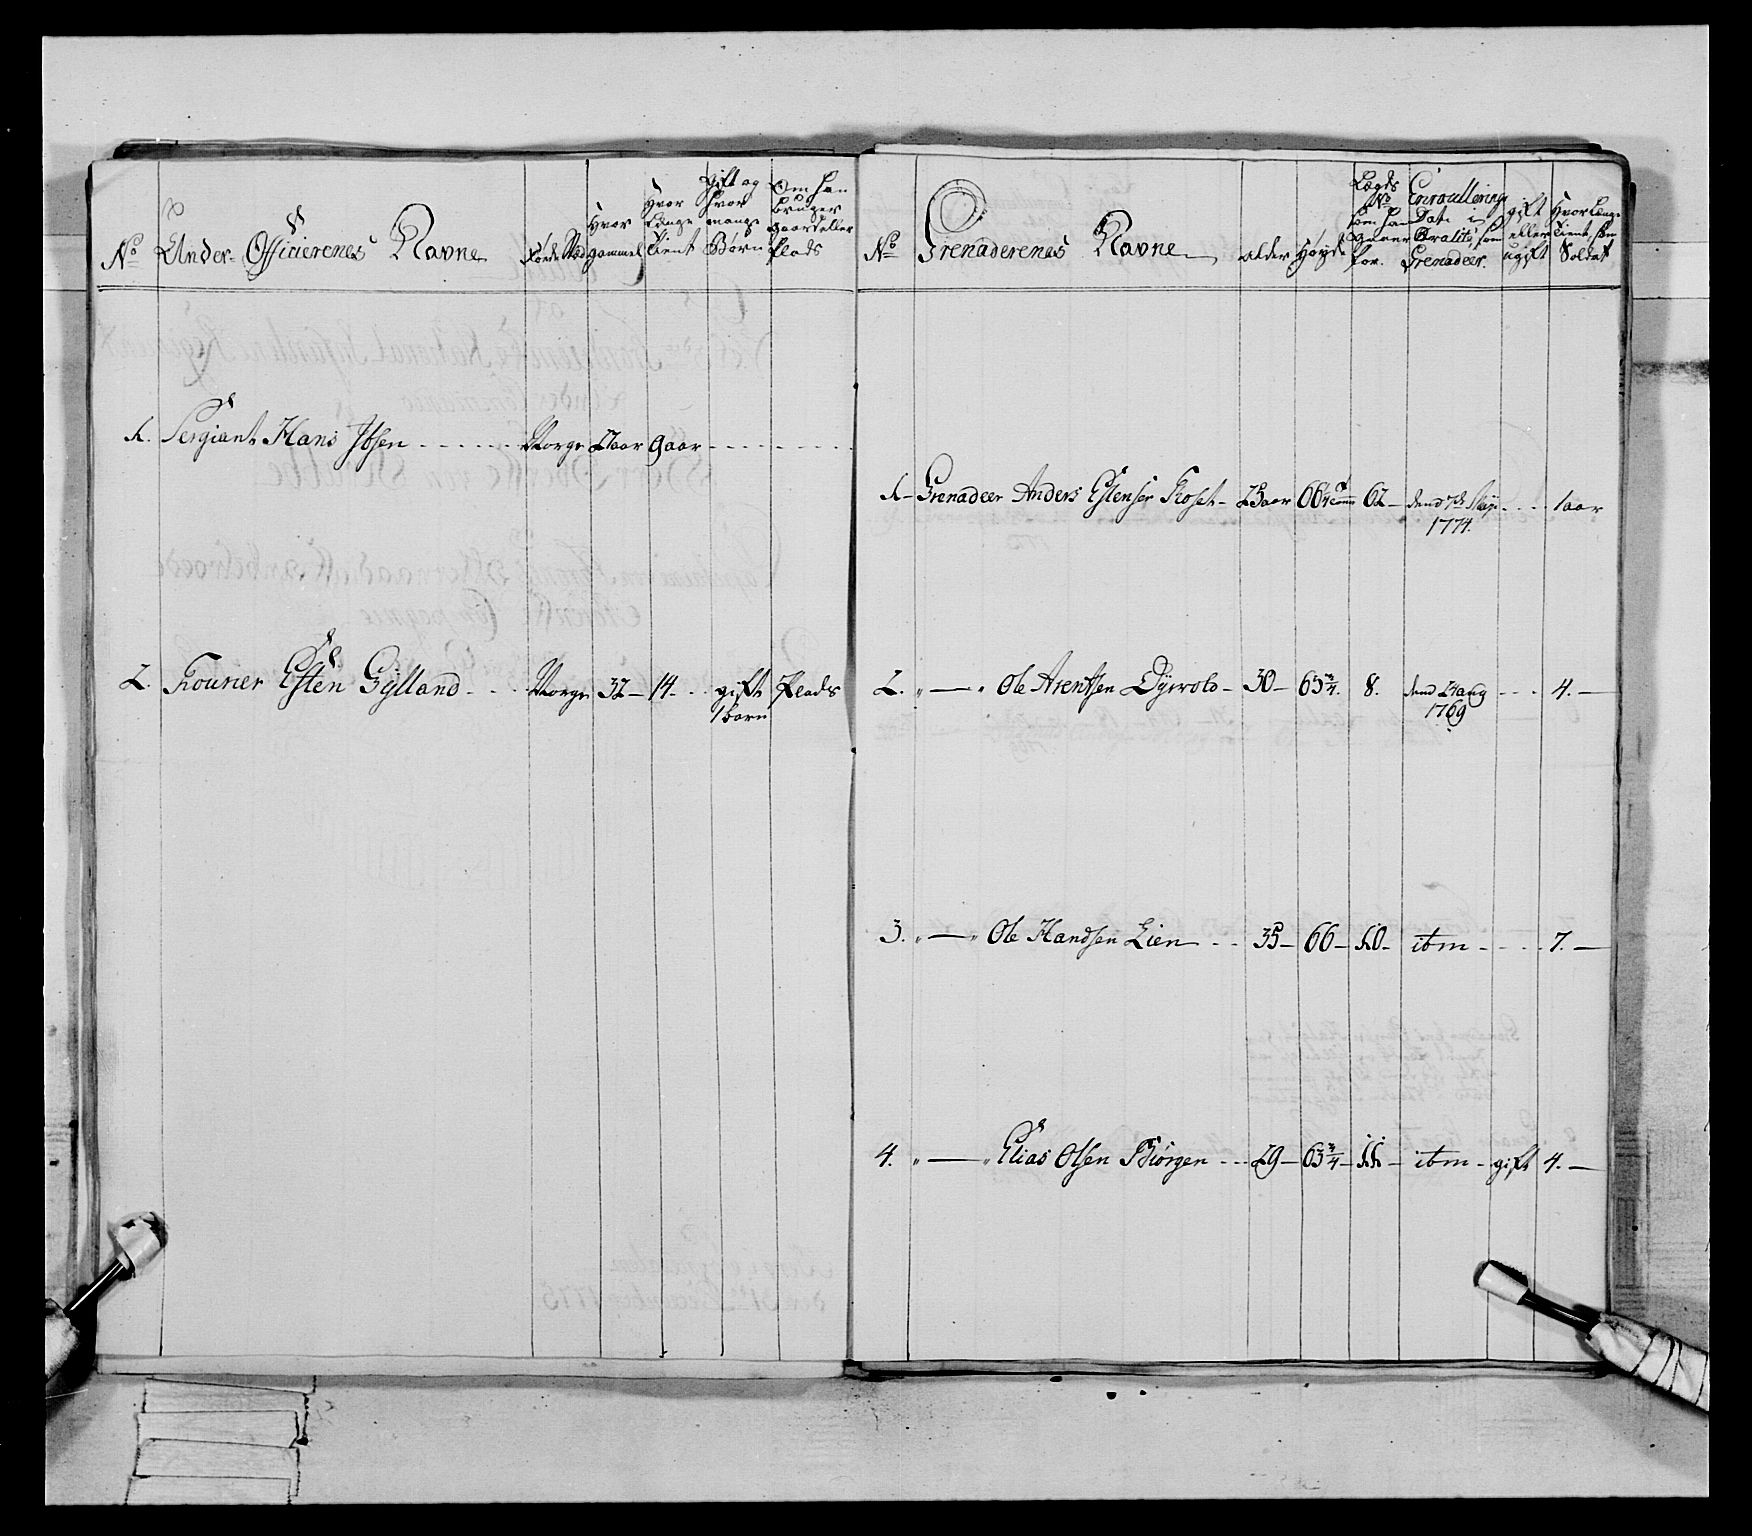 No Under-Officierenes Navne Føde Stæd Hvor gammel Hvor Længe tient Gift og hvor mange Børn Om han bruger gaard eller Plads
1. Sergiant Hans Ibsen - - - - - - Norge 27 aar 9 aar - - - - - - -
2. Fourier Esten Gylland - - - Norge 32 - 14 - - - gift Plads
1 barn
No Grenaderenes Navne Alder Høyde Lægds No som han svarer for. Enroullerings Dato i Qvalitè som Grenadeer. gift eller ugift Hvor Længe tient som Soldat
1 - Grenadeer Anders Estensen - 25 aar 66 1/4 62 - dend 7de May - - - 1 aar
1774.
2. " — " Ole Arentsen - 30 - 65 3/4. 8. dend 24 aug - - - 4. —
1769
3. " — " Ole Handsen Lien - - - 35 - 66 - 10 - itm - - - - 7. —
4. " — " Elias Olsen Biørgen - - - 29 - 63 3/4 - 11 - itm - gift 4. —